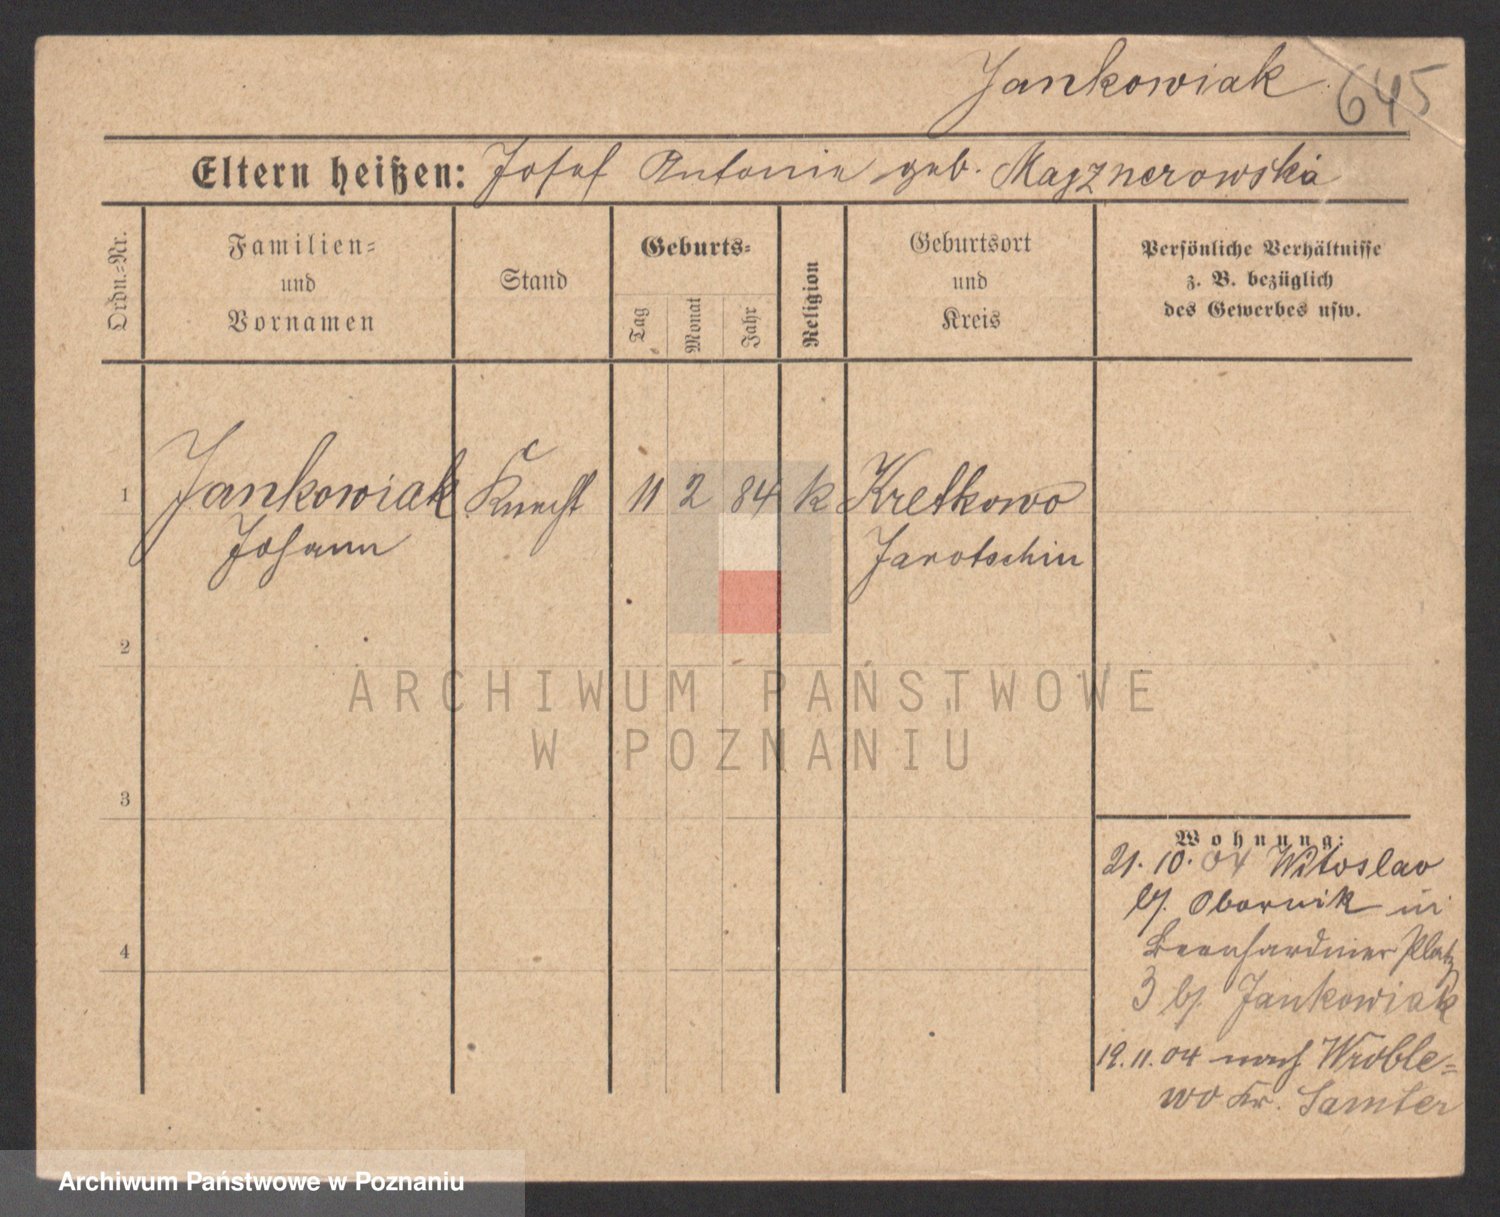 Jankowiak 645
Eltern heißen: Josef Antonie geb. Majznerowska
Ordn.-Nr.
Familien-
und
Vornamen
Stand
Geburts-
Tag
Monat
Jahr
Religion
Geburtsort
und
Kreis
Persönliche Verhältnisse
z. B. bezüglich
des Gewerbes usw.
1 Jankowiak Knecht 11 2 84 k Kretkowo
Johann Jarotschin
2
3
4
Wohnung:
21. 10. 04 Witoslaw
b/. Obornik in
Bernhardiner Platz
3 b/. Jankowiak
19. 11. 04 nach Wroble=
wo Kr. Samter
ARCHIWUM PAŃSTWOWE
W POZNANIU
Archiwum Państwowe w Poznaniu